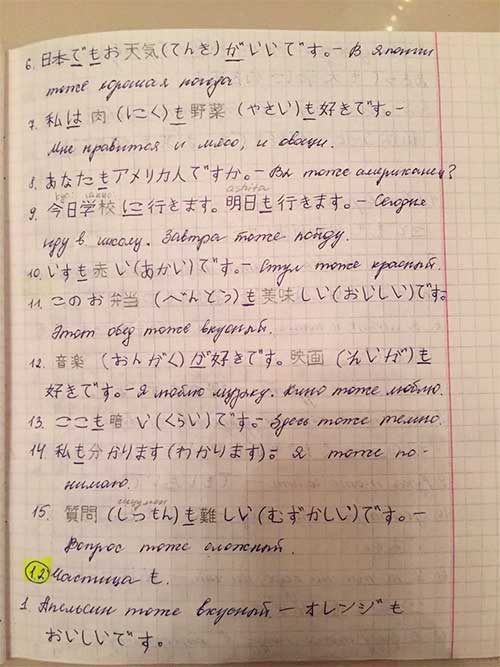 6. 日本でもお天気(てんき)がいいです。– В Японии
тоже хорошая погода
7. 私は肉 (にく)も野菜 (やさい)も好きです。–
Мне нравится и мясо, и овощи.
8. あなたもアメリカ人ですか。– Вы тоже американец?
ashita
9. 今日学校に行きます。明日も行きます。– Сегодня
иду в школу. Завтра тоже пойду.
10. いすも赤い(あかい)です。– Стул тоже красный.
11. このお弁当 (べんとう)も美味しい(おいしい)です。
Этот обед тоже вкусный.
12. 音楽 (おんがく)が好きです。映画 (えいが)も
好きです。– Я люблю музыку. Кино тоже люблю.
13. ここも暗い(くらい)です。– Здесь тоже темно.
14. 私も分かります(わかります)。– Я тоже по-
нимаю.
15. 質問 (しつもん)も難しい(むずかしい)です。–
Вопрос тоже сложный.
1.2 Частица も.
1. Апельсин тоже вкусный. – オレンジも
おいしいです。